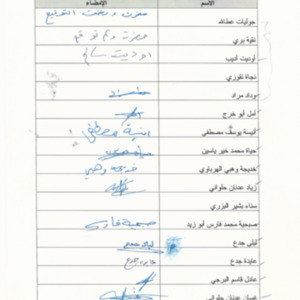 الاسم الإمضاء
جوليات عطالله حضرت ورفضت التوقيع
نقية بري حضرت ولم توقع
أوديت أديب اوديت
نجاة نقوزي
وداد مراد
أمل أبو خرج
أنيسة يوسف مصطفى انيسة مصطفى
حياة محمد خير ياسين
خديجة وهبي الهرباوي خديجة وهبي
زياد عدنان حلواني
سناء بشير البزري
صبحية محمد فارس أبو زيد صبحية فارس
ليلى جدع ليلى جدع
عايدة جدع عايدة جدع
عادل قاسم البرجي
غسان عدنان حلواني